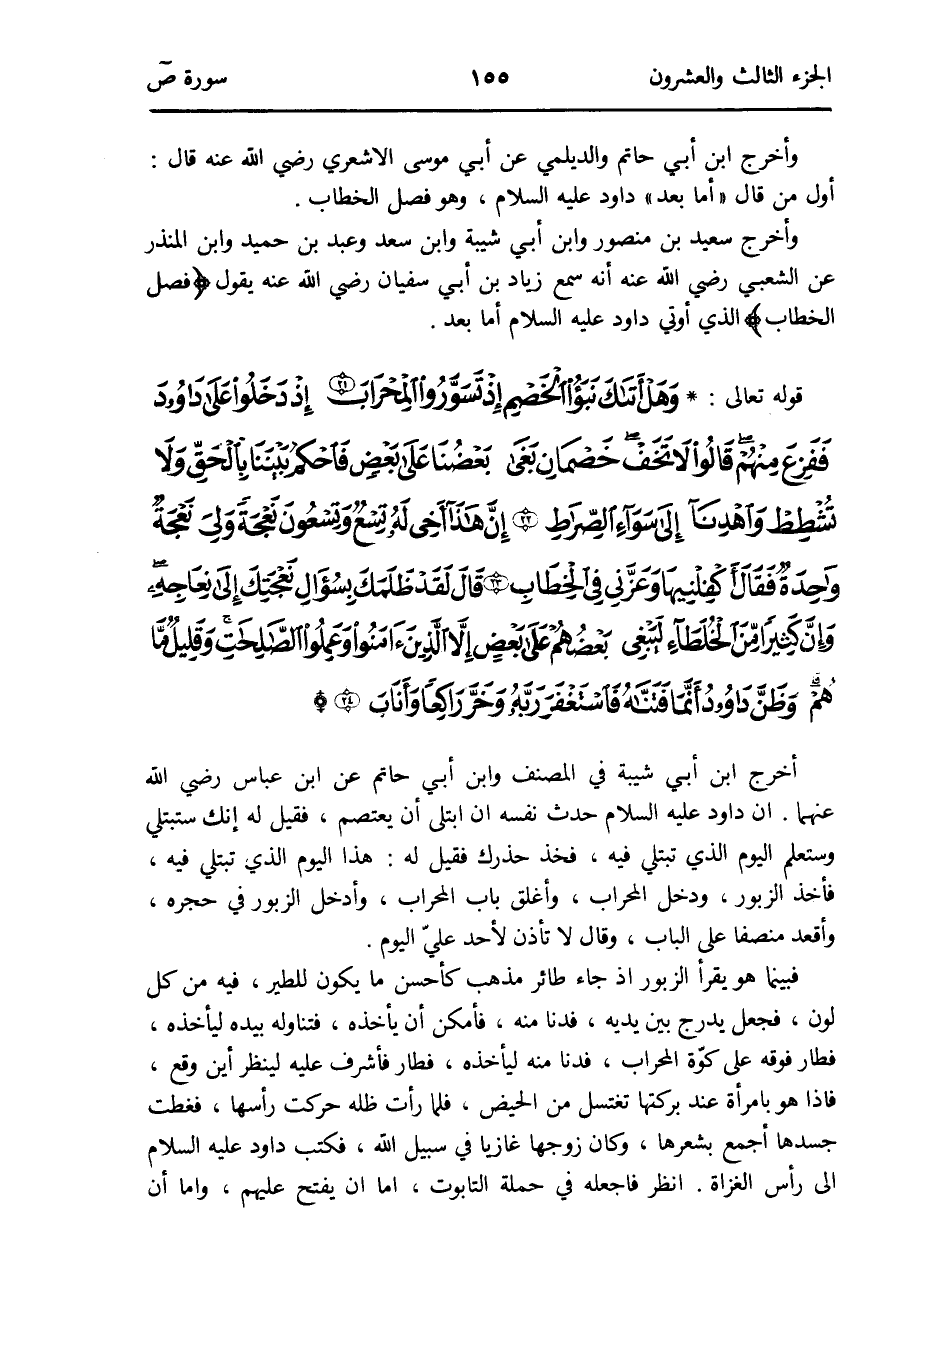 الجزء الثالث والعشرون ١٥٥ سورة صٓ
وأخرج ابن أبي حاتم والديلمي عن أبي موسى الاشعري رضي الله عنه قال :
أول من قال «أما بعد» داود عليه السلام ، وهو فصل الخطاب .
وأخرج سعيد بن منصور وابن أبي شيبة وابن سعد وعبد بن حميد وابن المنذر
عن الشعبي رضي الله عنه أنه سمع زياد بن أبي سفيان رضي الله عنه يقول ﴿فصل
الخطاب﴾ الذي أوتي داود عليه السلام أما بعد .
قوله تعالى : * وَهَلْ أَتَىٰكَ نَبَؤُا۟ ٱلْخَصْمِ إِذْ تَسَوَّرُوا۟ ٱلْمِحْرَابَ ٢١ إِذْ دَخَلُوا۟ عَلَىٰ دَاوُۥدَ
فَفَزِعَ مِنْهُمْ ۖ قَالُوا۟ لَا تَخَفْ ۖ خَصْمَانِ بَغَىٰ بَعْضُنَا عَلَىٰ بَعْضٍ فَٱحْكُم بَيْنَنَا بِٱلْحَقِّ وَلَا
تُشْطِطْ وَٱهْدِنَآ إِلَىٰ سَوَآءِ ٱلصِّرَٰطِ ٢٢ إِنَّ هَٰذَآ أَخِى لَهُۥ تِسْعٌ وَتِسْعُونَ نَعْجَةً وَلِىَ نَعْجَةٌ
وَٰحِدَةٌ فَقَالَ أَكْفِلْنِيهَا وَعَزَّنِى فِى ٱلْخِطَابِ ٢٣ قَالَ لَقَدْ ظَلَمَكَ بِسُؤَالِ نَعْجَتِكَ إِلَىٰ نِعَاجِهِۦ ۖ
وَإِنَّ كَثِيرًا مِّنَ ٱلْخُلَطَآءِ لَيَبْغِى بَعْضُهُمْ عَلَىٰ بَعْضٍ إِلَّا ٱلَّذِينَ ءَامَنُوا۟ وَعَمِلُوا۟ ٱلصَّٰلِحَٰتِ وَقَلِيلٌ مَّا
هُمْ ۗ وَظَنَّ دَاوُۥدُ أَنَّمَا فَتَنَّٰهُ فَٱسْتَغْفَرَ رَبَّهُۥ وَخَرَّ رَاكِعًا وَأَنَابَ ٢٤ *
أخرج ابن أبي شيبة في المصنف وابن أبي حاتم عن ابن عباس رضي الله
عنهما . ان داود عليه السلام حدث نفسه ان ابتلى أن يعتصم ، فقيل له إنك ستبتلي
وستعلم اليوم الذي تبتلي فيه ، فخذ حذرك فقيل له : هذا اليوم الذي تبتلي فيه ،
فأخذ الزبور ، ودخل المحراب ، وأغلق باب المحراب ، وأدخل الزبور في حجره ،
وأقعد منصفا على الباب ، وقال لا تأذن لأحد عليّ اليوم .
فبينما هو يقرأ الزبور اذ جاء طائر مذهب كأحسن ما يكون للطير ، فيه من كل
لون ، فجعل يدرج بين يديه ، فدنا منه ، فأمكن أن يأخذه ، فتناوله بيده ليأخذه ،
فطار فوقه على كوّة المحراب ، فدنا منه ليأخذه ، فطار فأشرف عليه لينظر أين وقع ،
فاذا هو بامرأة عند بركتها تغتسل من الحيض ، فلما رأت ظله حركت رأسها ، فغطت
جسدها أجمع بشعرها ، وكان زوجها غازيا في سبيل الله ، فكتب داود عليه السلام
الى رأس الغزاة . انظر فاجعله في حملة التابوت ، اما ان يفتح عليهم ، واما أن